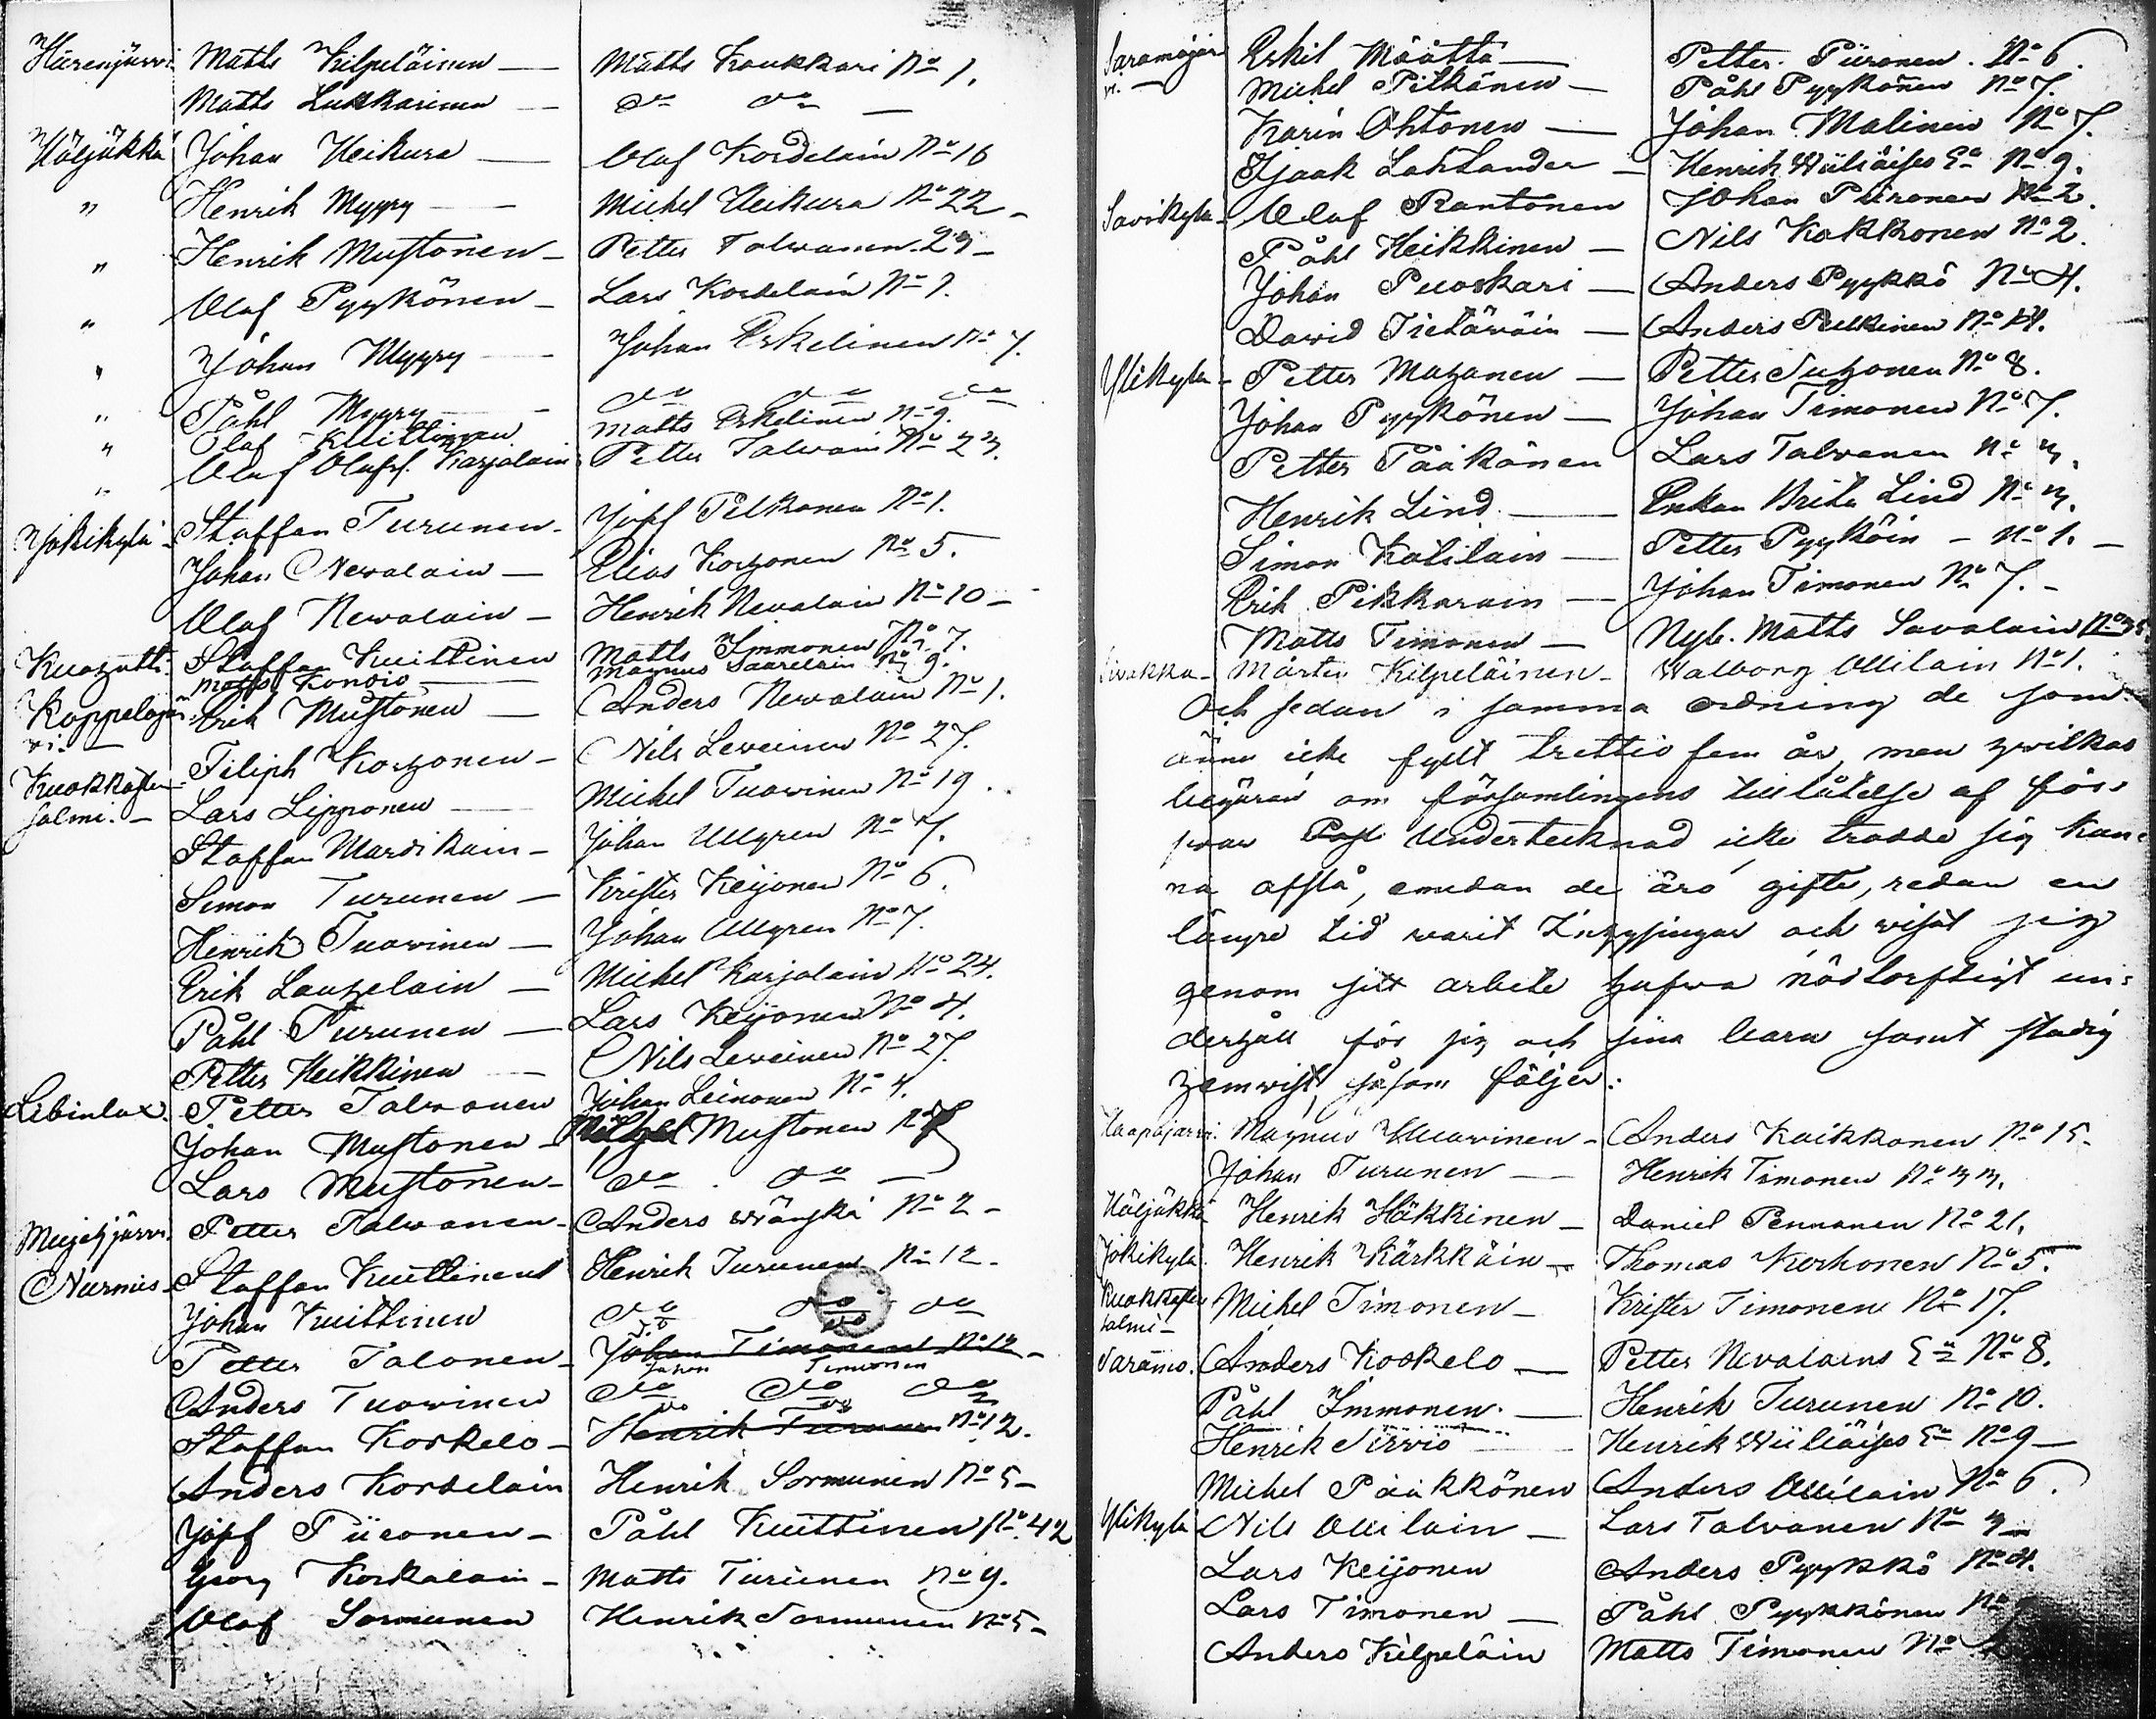 Hirvenjärvi. Matts Kilpeläinen — Matts Koukkari No 1.
Matts Lukkarinen — do do —
Höljäkkä Johan Heikura — Olof Kordelain No 16
" Henrik Myyry — Michel Heikura No 22 –
" Henrik Mustonen – Petter Talvanen. 29 –
" Olof Pyykönen – Lars Kordelain No 1.
" Johan Myyry — Johan Eskelinen No 7.
" Påhl Myyry — do do do
" Olof Kuittinen Matts Eskelinen No 9.
" Olof Olofss. Karjalain Petter Talvain No 23.
Jokikylä Staffan Turunen – Josef Pelkonen No 1.
Johan Nevalain — Elias Korhonen No 5.
Olof Nevalain – Henrik Nevalain No 10 –
Kuohatti. Staffan Kuittinen Matts Immonen No 7.
Matts Kondio — Magnus Saarelain No 9.
Koppelojär Erik Mustonen — Anders Nevalain No 1.
vi. — Filiph Korhonen – Nils Leveinen No 27.
Kuokkasten Lars Lipponen — Michel Tuovinen No 19.
salmi. – Staffan Mardikain – Johan Ullgren No 7.
Simon Turunen – Krister Keijonen No 6.
Henrik Tuovinen — Johan Ullgren No 7.
Erik Lauhelain — Michel Karjalain No 24.
Påhl Turunen — Lars Keijonen No 4.
Petter Heikkinen — Nils Leveinen No 27.
Libinlax. Petter Talvanen Johan Leinonen No 4.
Johan Mustonen – Michel Mustonen No 7
Lars Mustonen – do. do —
Mujejärvi. Petter Talvanen – Anders Wänskä No 2 –
Nurmis – Staffan Kuittinen Henrik Turunen No 12 –
Johan Kuittinen do do do
Petter Talonen – Johan Timonen No 12 –
Johan Timonen
Anders Tuovinen do do do
Staffan Koskelo – Henrik Turunen No 12.
Anders Kordelain Henrik Sormunen No 5 –
Josef Piironen – Påhl Kuittinen No 42
Georg Korkalain – Matts Turunen No 9.
Olof Sormunen Henrik Sormunen No 5 –
Saramojär Eskil Määttä — Petter Piironen. No 6.
vi. — Michel Pitkänen — Påhl Pyykönen No 7.
Karin Ohtonen — Johan Malinen No 7.
Isaak Lahlander — Henrik Wiiliäises No 9.
Savikylä – Olof Rantonen Johan Piironen No 2.
Påhl Heikkinen — Nils Kokkonen No 2.
Johan Puoskari — Anders Pyykkö No 4.
David Tietäväin — Anders Pulkinen No 14.
Ylikylä – Petter Mahanen — Petter Suhonen No 8.
Johan Pyykönen — Johan Timonen No 7.
Petter Pääkönen Lars Talvanen No 3.
Henrik Lind. — Enkan Brita Lind No 3.
Simon Katilain — Petter Pyyköin – No 1. –
Erik Pikkarain — Johan Timonen No 7. –
Matts Timonen — Nyb. Matts Savolain No 35
Sivakka – Mårten Kilpeläinen – Walborg Ollilain No 1.
Och sedan i samma ordning de som
ännu icke fyllt trettio fem år, men hvilkas
begäran om församlingens tillåtelse af för-
svar Undertecknad icke trodde sig kun-
na afslå, emedan de äro gifte, redan en
längre tid varit Inhysingar och visat sig
genom sitt arbete hafva nödtorftigt un-
derhåll för sig och sina barn samt stadig
hemvist, såsom följer:
Haapajärvi. Magnus Huovinen – Anders Kaikkonen No 15 –
Johan Turunen — Henrik Timonen No 33.
Höljäkkä Henrik Häkkinen – Daniel Pennanen No 21.
Jokikylä. Henrik Kärkkäin – Thomas Korhonen No 5.
Kuokkasten Michel Timonen – Krister Timonen No 17.
salmi –
Saramo. Anders Koskelo — Petter Nevalains No 8.
Påhl Immonen. — Henrik Turunen No 10.
Henrik Sirviö — Henrik Wiiliäises No 9 –
Michel Pääkkönen Anders Ollilain No 6.
Ylikylä Nils Ollilain — Lars Talvanen No 3 –
Lars Keijonen Anders Pyykkö No 4.
Lars Timonen — Påhl Pyykkönen No
Anders Kilpeläin Matts Timonen No